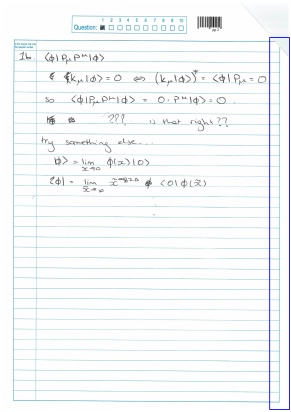 Question: 1 2 3 4 5 6 7 8 9 10
1b. ⟨φ|PμP^μ|φ⟩
Kμ|φ⟩ = 0 ⇔ (Kμ|φ⟩)† = ⟨φ|Pμ = 0
so ⟨φ|PμP^μ|φ⟩ = 0 · P^μ|φ⟩ = 0.
??? is that right??
try something else...
|φ⟩ = lim x→0 φ(x)|0⟩
⟨φ| = lim x→∞ ⟨0|φ(x)